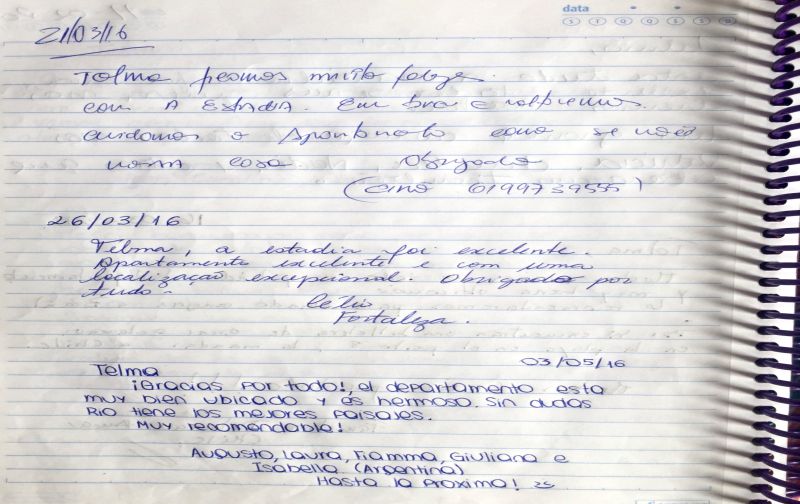 data
S T Q Q S S D
21/03/16
Telma ficamos muito felizes
com A ESTADIA. Em breve voltaremos.
cuidamos o Apartamento como se
nossa casa. Obrigado
( 01997 39555 )
26/03/16
Telma, a estadia foi excelente.
Apartamento excelente e com uma
localização excepcional. Obrigado por
tudo.
Célio
Fortaleza.
03/05/16
Telma
¡Gracias por todo!, el departamento esta
muy bien ubicado y es hermoso. Sin dudas
Rio tiene los mejores paisajes.
Muy recomendable!
Augusto, Laura, Fiamma, Giuliana e
Isabella (Argentina)
Hasta la proxima!